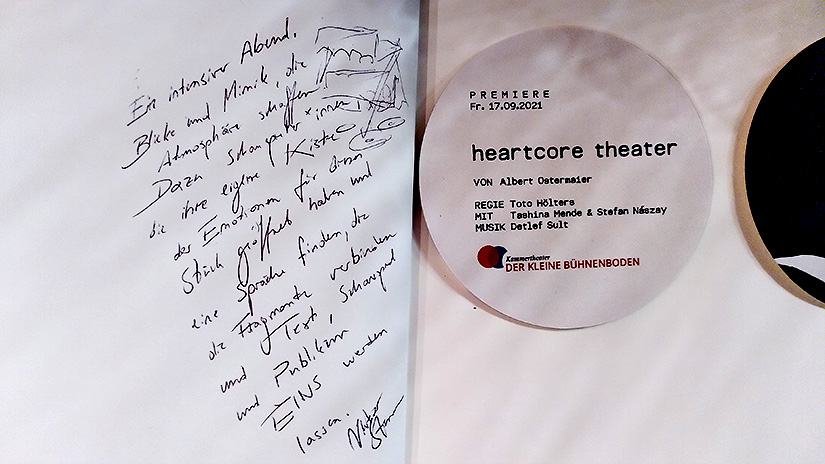 Ein intensiver Abend.
Blicke und Mimik, die
Atmosphäre schaffen.
Dazu Schauspieler*innen,
die ihre eigene Kiste
der Emotionen für dieses
Stück geöffnet haben und
eine Sprache finden, die
die Fragmente verbinden
und Text, Schauspiel
und Publikum
EINS werden
lassen.
PREMIERE
Fr. 17.09.2021
heartcore theater
VON Albert Ostermaier
REGIE Toto Hölters
MIT Tashina Mende & Stefan Nászay
MUSIK Detlef Sult
Kammertheater
DER KLEINE BÜHNENBODEN